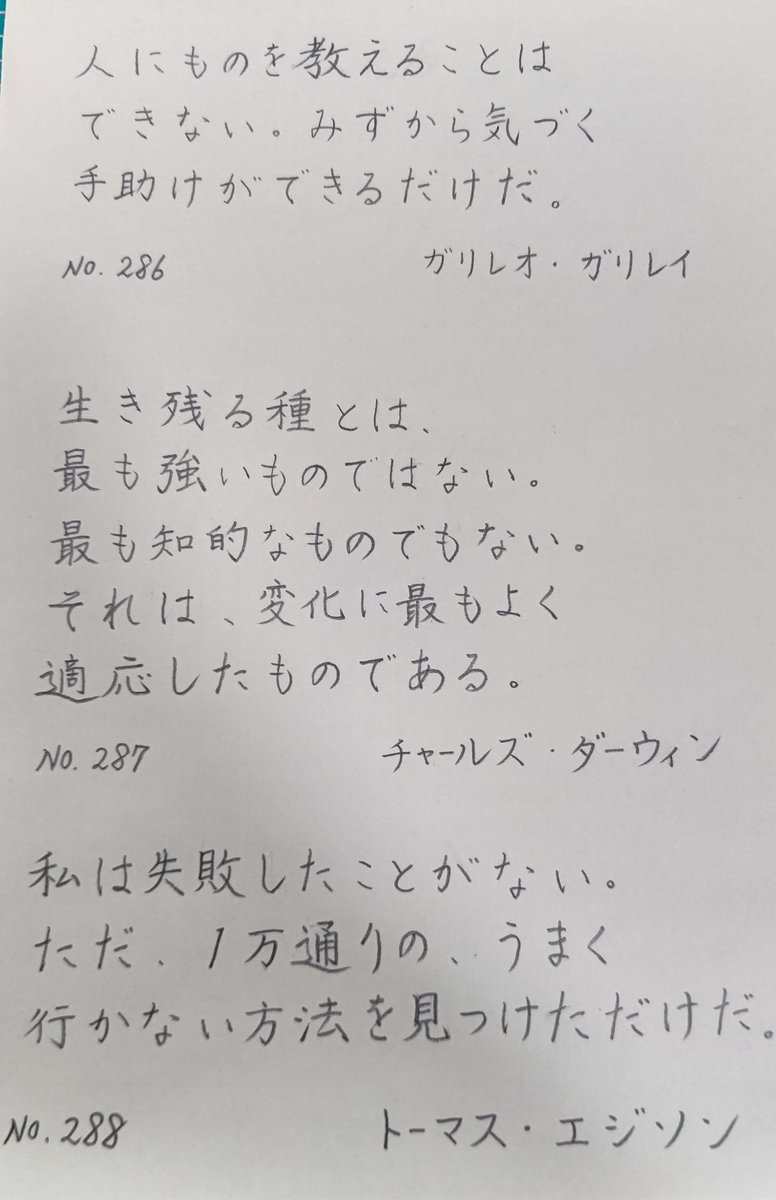 人にものを教えることは
できない。みずから気づく
手助けができるだけだ。
No. 286 ガリレオ・ガリレイ
生き残る種とは、
最も強いものではない。
最も知的なものでもない。
それは、変化に最もよく
適応したものである。
No. 287 チャールズ・ダーウィン
私は失敗したことがない。
ただ、1万通りの、うまく
行かない方法を見つけただけだ。
No. 288 トーマス・エジソン